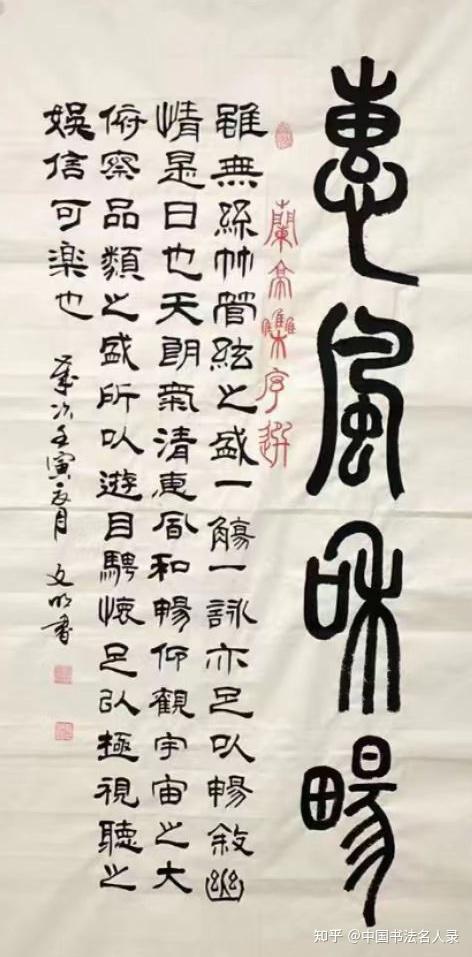 惠風和暢
蘭亭集序選
雖無絲竹管絃之盛一觴一詠亦足以暢敘幽
情是日也天朗氣清惠風和暢仰觀宇宙之大
俯察品類之盛所以遊目騁懷足以極視聽之
娛信可楽也
歲次壬寅月 文明書
知乎 @中国书法名人录